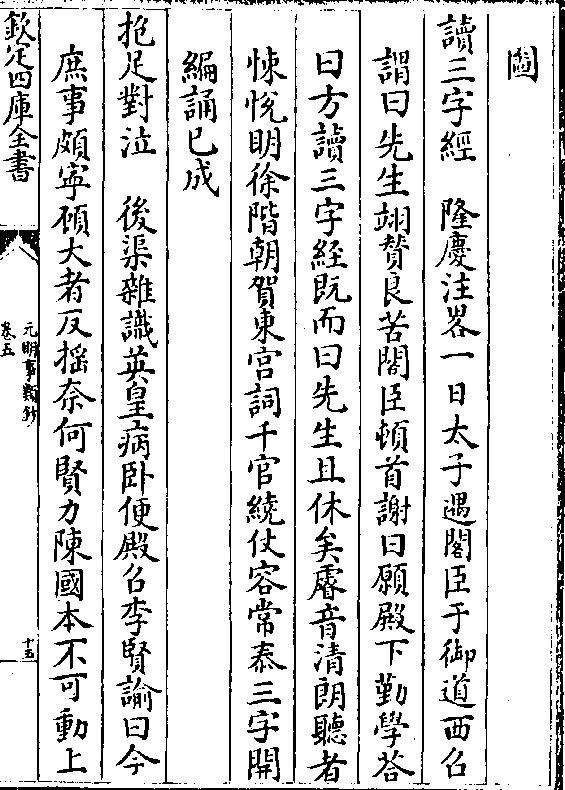 圗
讀三字經　隆慶注畧一日太子遇閣臣于御道西召
謂曰先生翊賛良苦閣臣頓首謝曰願殿下勤學荅
曰方讀三字經既而曰先生且休矣睿音清朗聽者
悚恱明徐階朝賀東宫詞千官繞仗容常泰三字開
編誦已成
抱足對泣　後渠雜識英皇病卧便殿召李賢諭曰今
庶事頗寜顧大者反揺奈何賢力陳國本不可動上
欽定四庫全書
元明事類鈔
卷五
十五